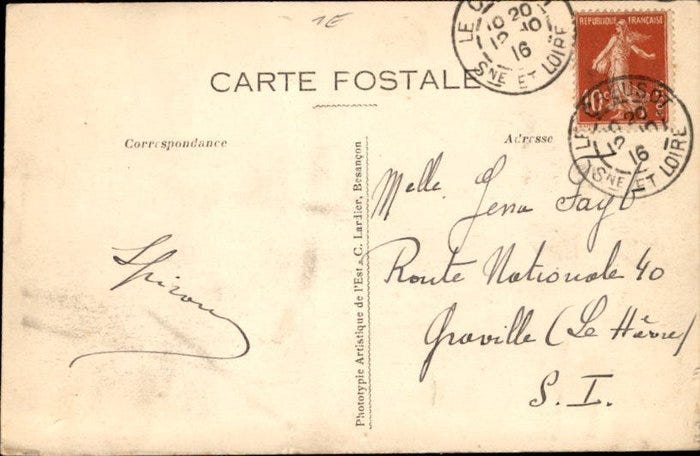 1E
LE CREUSOT
10 20
12 10
16
SNE ET LOIRE
REPUBLIQUE FRANÇAISE
10c
LE CREUSOT
20
16
SNE ET LOIRE
CARTE POSTALE
Correspondance
Adresse
Phototypie Artistique de l'Est - C. Lardier, Besançon
Melle
Route Nationale 40
Graville (Le Hâvre)
S. I.